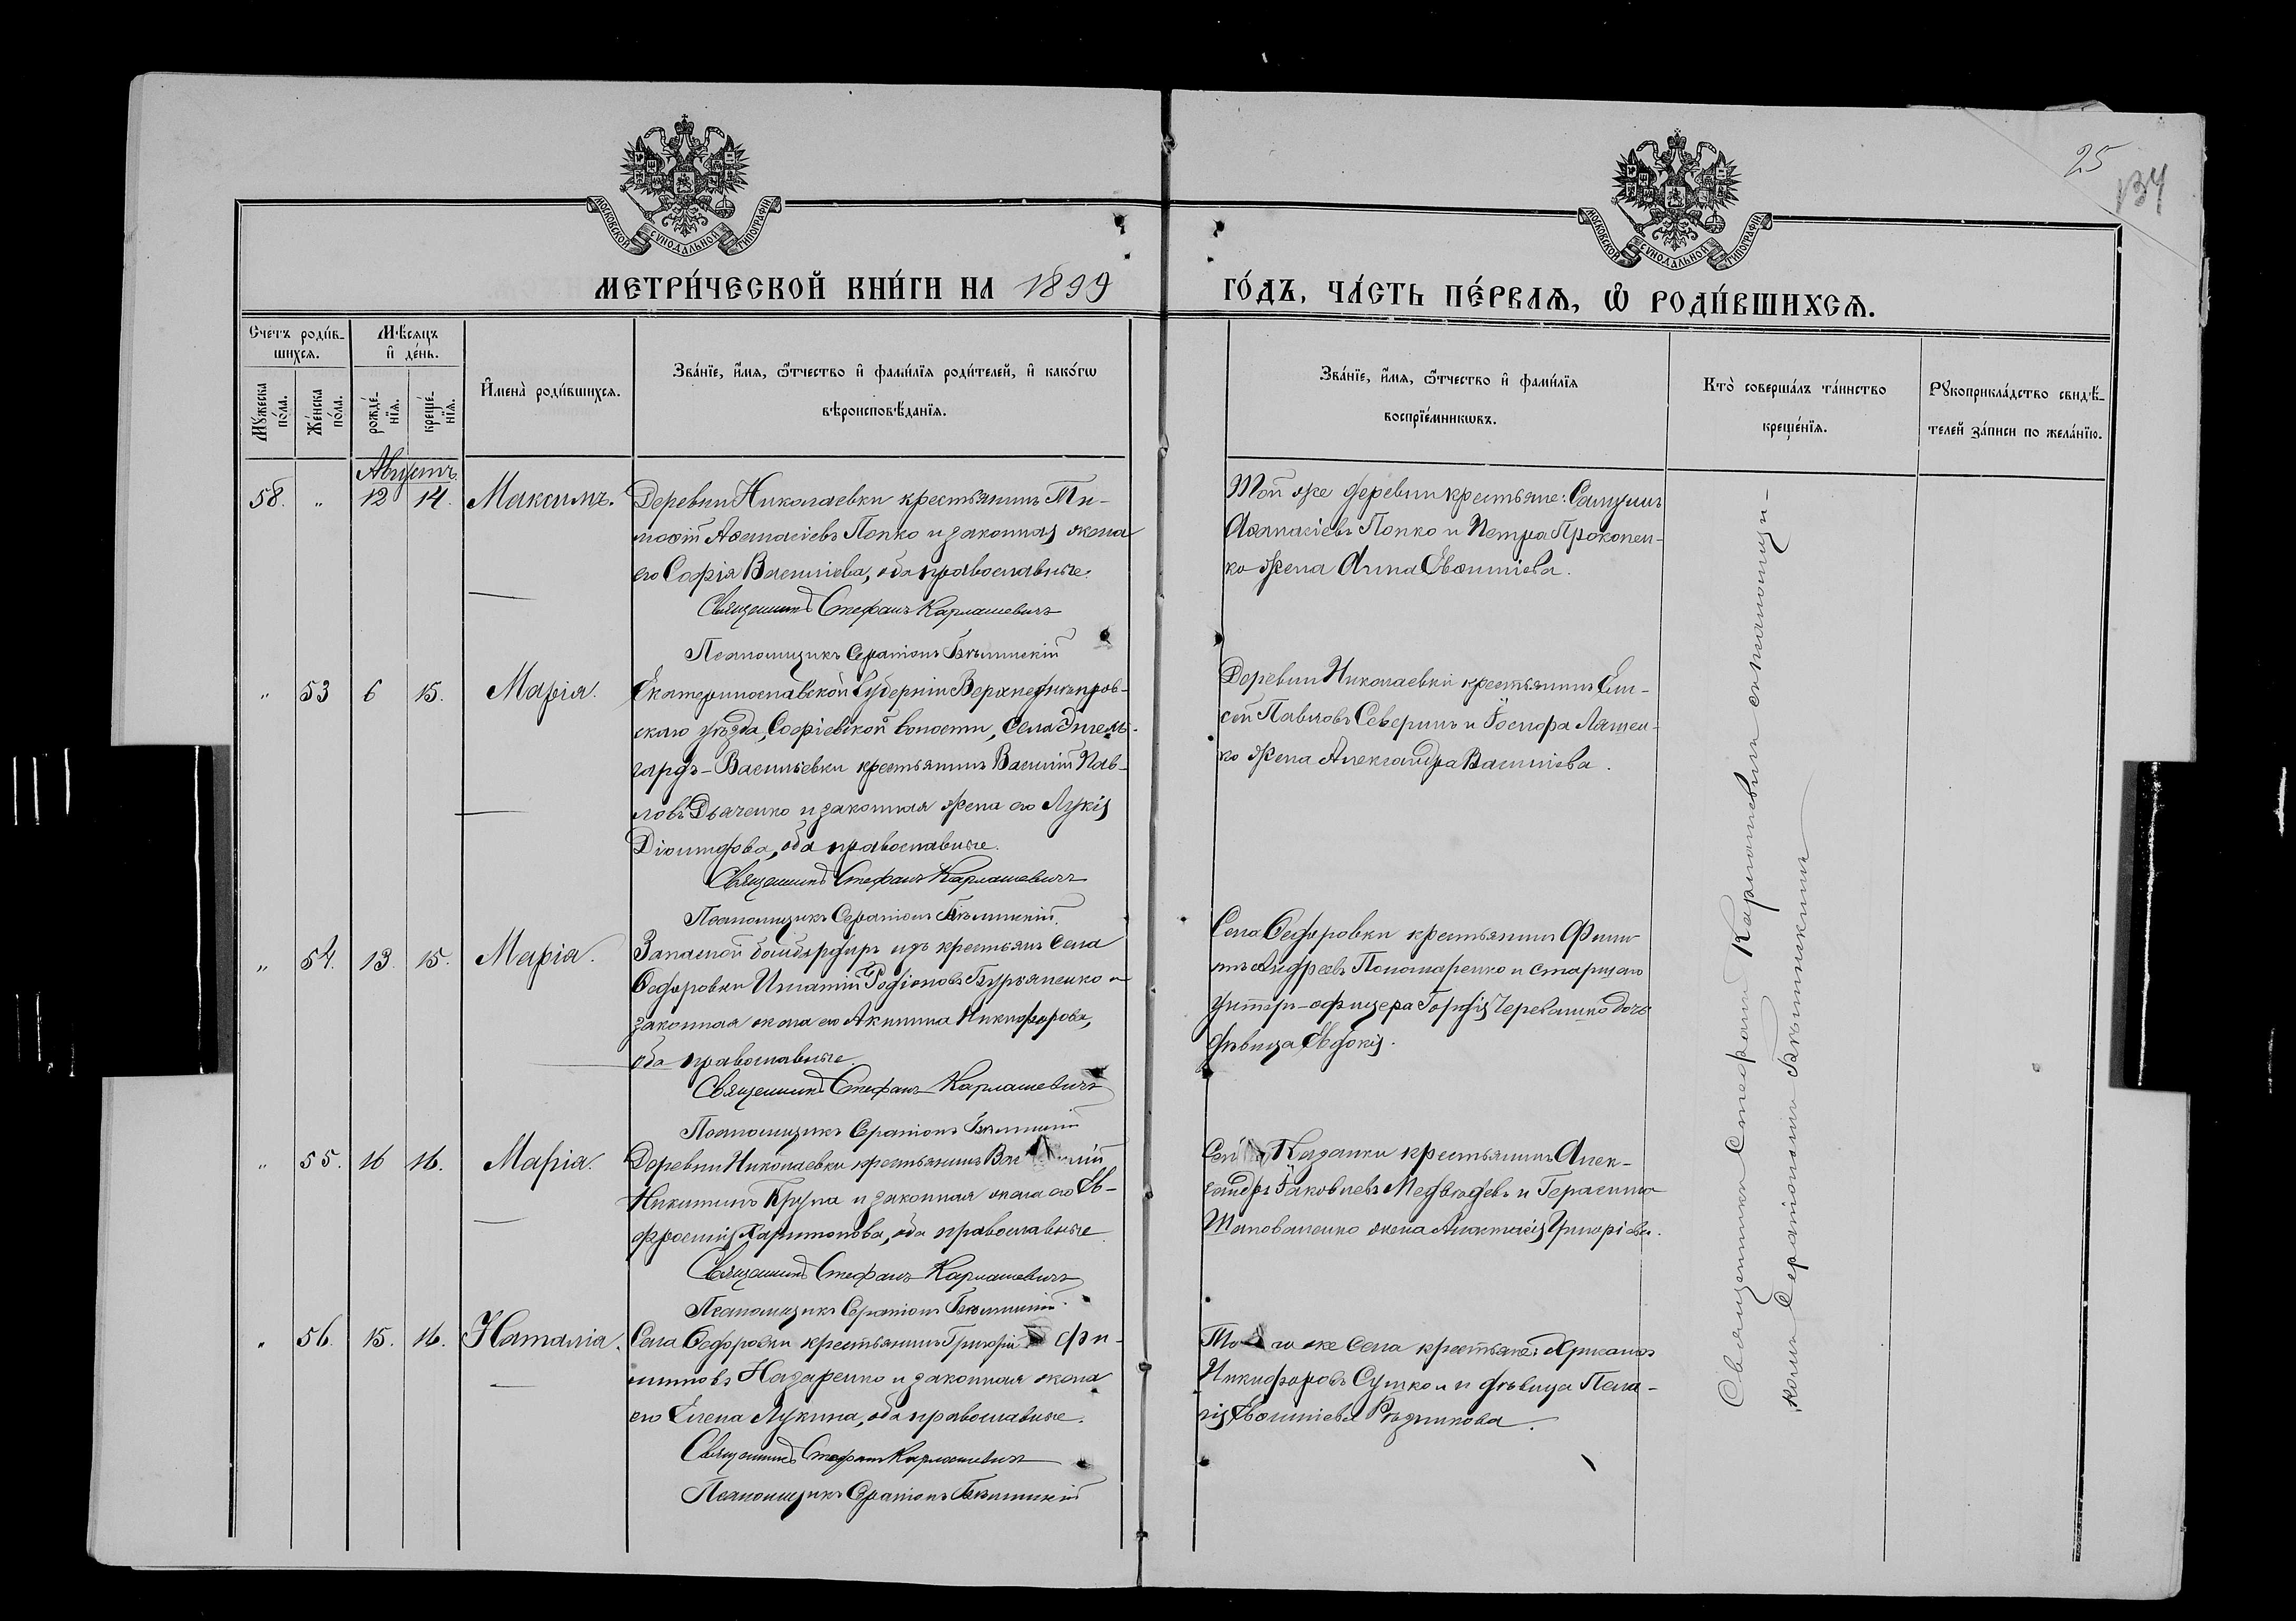 25
134
МОСКОВСКОЙ СѴНОДАЛЬНОЙ ТИПОГРАФІИ
МОСКОВСКОЙ СѴНОДАЛЬНОЙ ТИПОГРАФІИ
МЕТРИ́ЧЕСКОЙ КНИ́ГИ НА 1899
ГО́ДЪ, ЧА́СТЬ ПЕ́РВАѦ, Ѡ҆ РОДИ́ВШИХСѦ.
Счетъ роди́в-
шихся.
Мѣ́сяцъ
и҆ де́нь.
Мꙋ́жеска по́ла.
Же́нска по́ла.
рожде́-нїѧ.
креще́-нїѧ.
И҆мена̀ роди́вшихся.
Зва́нїе, и҆́мѧ, ѻ҆́тчество и҆ фами́лїѧ роди́телей, и҆ како́гѡ
вѣроисповѣ́данїѧ.
Зва́нїе, и҆́мѧ, ѻ҆́тчество и҆ фами́лїѧ
воспрїе́мникѡвъ.
Кто̀ соверша́лъ та́инство
креще́нїѧ.
Рꙋкоприкла́дство свидѣ́-
телей за́писи по жела́нїю.
Августъ
58. " 12 14. Максимъ.
Деревни Николаевки крестьянинъ Ти-
моѳій Аѳанасіевъ Попко и законная жена
его Софія Василіева, оба православные.
Священникъ Стефанъ Карлашевичъ
Псаломщикъ Серапіонъ
Той же деревни крестьяне: Самуилъ
Аѳанасіевъ Попко и Петра Прокопен-
ко жена Анна Евѳиміева.
" 53 6 15. Марія.
Екатеринославской губерніи Верхнеднѣпров-
скаго уѣзда, Софіевской волости, села Энгель-
гардъ-Васильевки крестьянинъ Василій Пав-
ловъ Дьяченко и законная жена его Лукія
Діомидова, оба православные.
Священникъ Стефанъ Карлашевичъ
Псаломщикъ Серапіонъ
Деревни Николаевки крестьянинъ Ели-
сей Павловъ Северинъ и Іосифа Ляшен-
ко жена Александра Василіева.
" 54. 13. 15. Марія.
Запасной бомбардиръ изъ крестьянъ села
Ѳедоровки Игнатій Родіоновъ Бурьяненко и
законная жена его Акилина Никифорова,
оба православные.
Священникъ Стефанъ Карлашевичъ
Псаломщикъ Серапіонъ
Села Ѳедоровки крестьянинъ Филип-
пъ Андреевъ Пономаренко и старшаго
унтеръ-офицера Гордія Череватенко дочь
дѣвица Евдокія.
" 55. 16 16. Марія.
Деревни Николаевки крестьянинъ Василій
Никитинъ Крупа и законная жена его Ев-
фросинія Харитонова, оба православные.
Священникъ Стефанъ Карлашевичъ
Псаломщикъ Серапіонъ
Села Казанки крестьянинъ Алек-
сандръ Іаковлевъ Медвѣдевъ и Герасима
Шаповаленко жена Анастасія Григоріева.
" 56. 15. 16. Наталія.
Села Ѳедоровки крестьянинъ Григорій Фи-
липповъ Назаренко и законная жена
его Елена Лукина, оба православные.
Священникъ Стефанъ Карлашевичъ
Псаломщикъ Серапіонъ
Того же села крестьяне:
Никифоровъ Сушко и дѣвица Пела-
гія Евѳиміева Рѣзникова.
Священникъ Стефанъ Карлашевичъ съ псаломщи-
комъ Серапіономъ